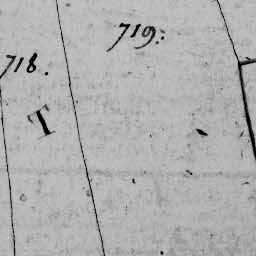 719:
718.
T